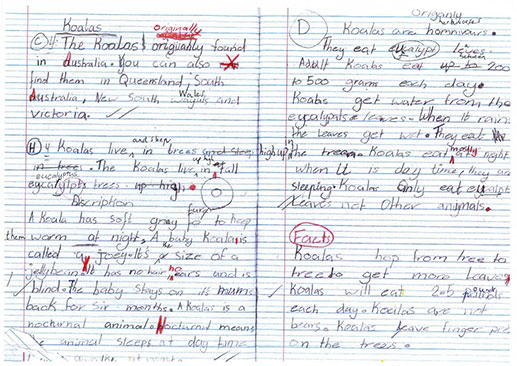 Koalas
originally
C 4 The Koalas origianlly found
in Australia. You can also
find them in Queensland, South
Australia, New South Wales and
Victoria.
H 4 Koalas live in trees and sleep high up
and keep
in trees. The Koalas live in tall
up high
eucalyptus
eucaytpts trees. up high.
Discription
A Koala has soft gray fur to keep
them warm at night. A baby Koala is
called a joey. It's the size of a
jellybean. It has no hair no ears and is
blind. The baby stays on its mums
back for sir months. A Koalas is a
nocturnal animal. Nocturnid means
the animal sleeps at day time
D
Koalas are homnivours.
They eat eucalypt leaves.
Adult Koalas eat up to 200
to 500 grams each day.
Koalas get water from the
eucalypnts leaves. When it rain
the leaves get wet. They eat
the trees. Koalas eat mostly night
when it is day time they are
sleeping. Koalas only eat eucalpt
leaves not other animals.
Facts
Koalas hop from tree to
tree to get more leaves
Koalas will eat 2.5 pounds
each day. Koalas are not
bears. Koalas leave finger pre
on the trees.